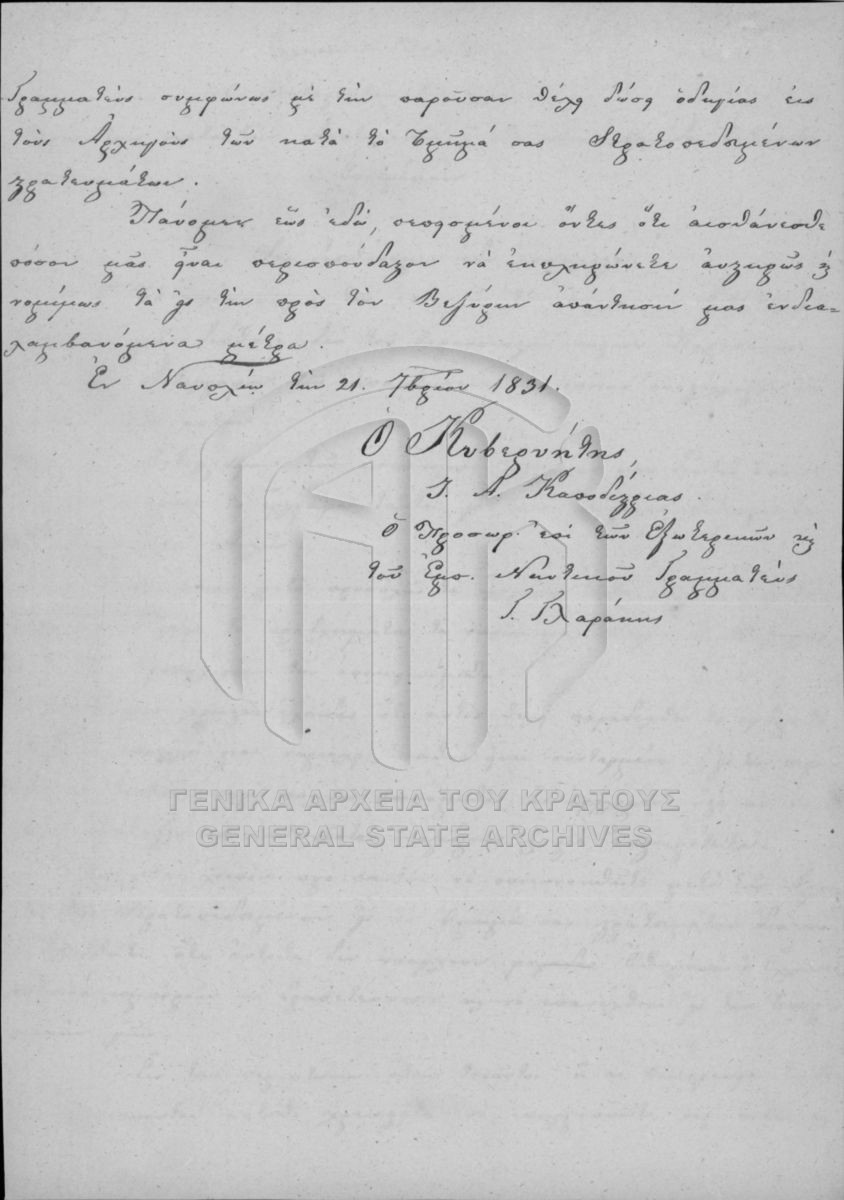 Γραμματεὺς συμφώνως μὲ τὴν παροῦσαν θέλῃ δώσῃ ὁδηγίας εἰς
τοὺς Ἀρχηγοὺς τῶν κατὰ τὸ Τμῆμά σας Στρατοπεδευμένων
στρατευμάτων.
Παύομεν ἕως ἐδῶ, πεπεισμένοι ὄντες ὅτι αἰσθάνεσθε
πόσον μᾶς εἶναι περισπούδαστον νὰ ἐκπληρώνετε αὐστηρῶς καὶ
νομίμως τὰ εἰς τὴν πρὸς τὸν Βεζύρην ἀπάντησίν μας ἐνδια-
λαμβανόμενα μέτρα.
Ἐν Ναυπλίῳ τὴν 21. 7βρίου 1831.
Ὁ Κυβερνήτης,
Ι. Α. Καποδίστριας.
Ὁ Προσωρ. ἐπὶ τῶν Ἐξωτερικῶν καὶ
τοῦ Ἐμπ. Ναυτικοῦ Γραμματεὺς
Γ. Γλαράκης
ΓΕΝΙΚΑ ΑΡΧΕΙΑ ΤΟΥ ΚΡΑΤΟΥΣ
GENERAL STATE ARCHIVES